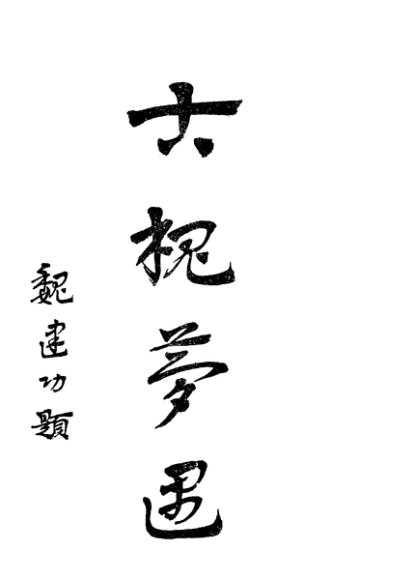 古槐夢遇
魏建功題